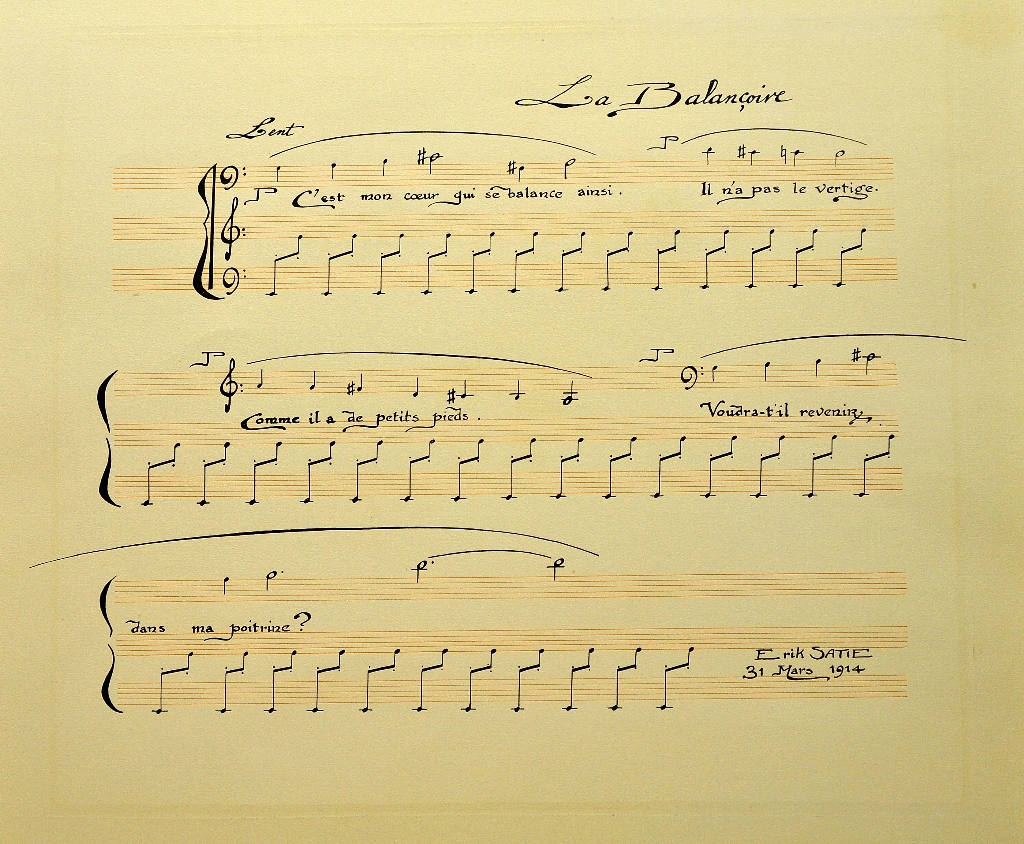 La Balançoire
Lent
C'est mon cœur qui se balance ainsi. Il n'a pas le vertige.
Comme il a de petits pieds. Voudra-t'il revenir,
dans ma poitrine?
Erik SATIE
31 Mars 1914